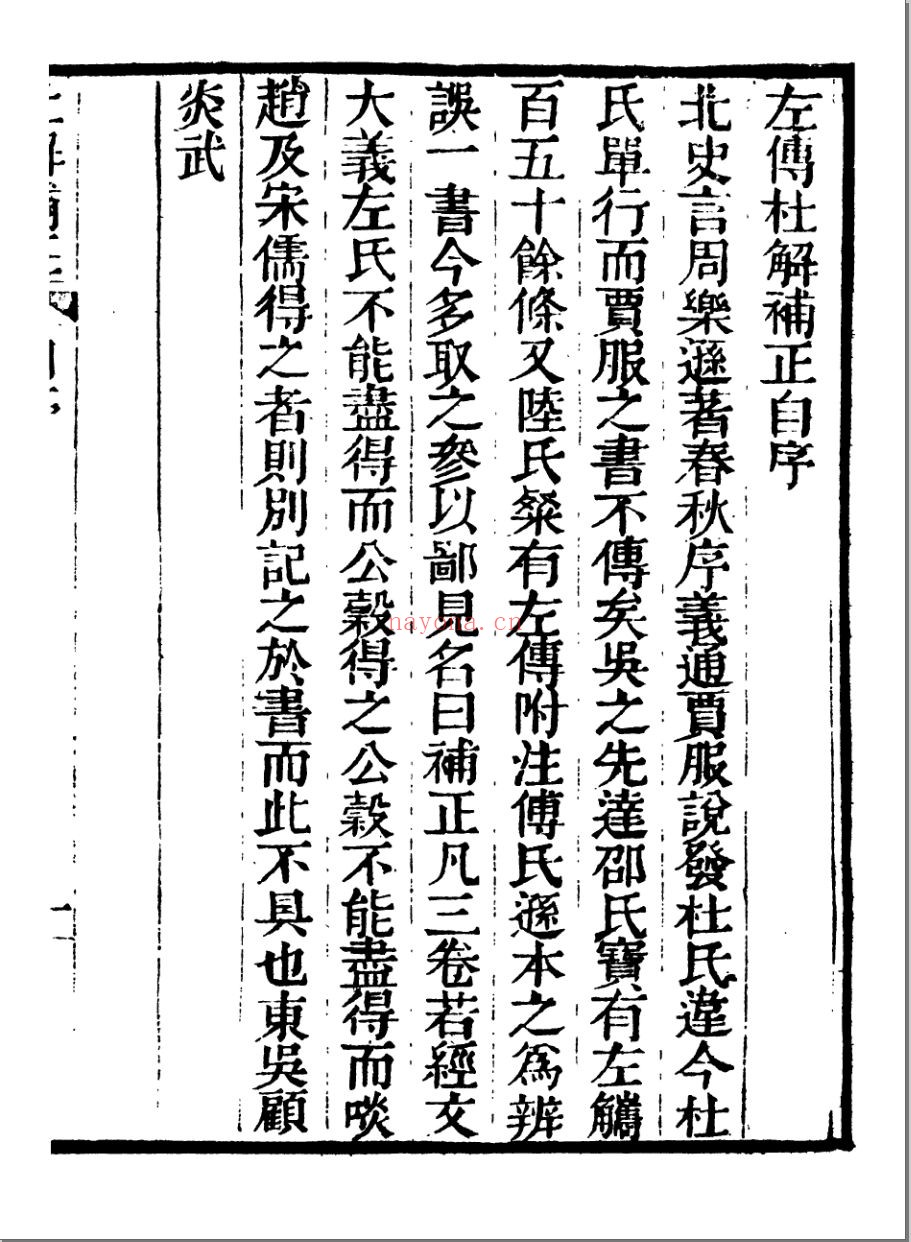 左傳杜解補正自序
北史言周樂遜著春秋序義通賈服說發杜氏違今杜
氏單行而賈服之書不傳矣吳之先達邵氏寶有左觿
百五十餘條又陸氏粲有左傳附注傅氏遜本之為辨
誤一書今多取之參以鄙見名曰補正凡三卷若經文
大義左氏不能盡得而公穀得之公穀不能盡得而啖
趙及宋儒得之者則別記之於書而此不具也東吳顧
炎武
一
nayona.cn